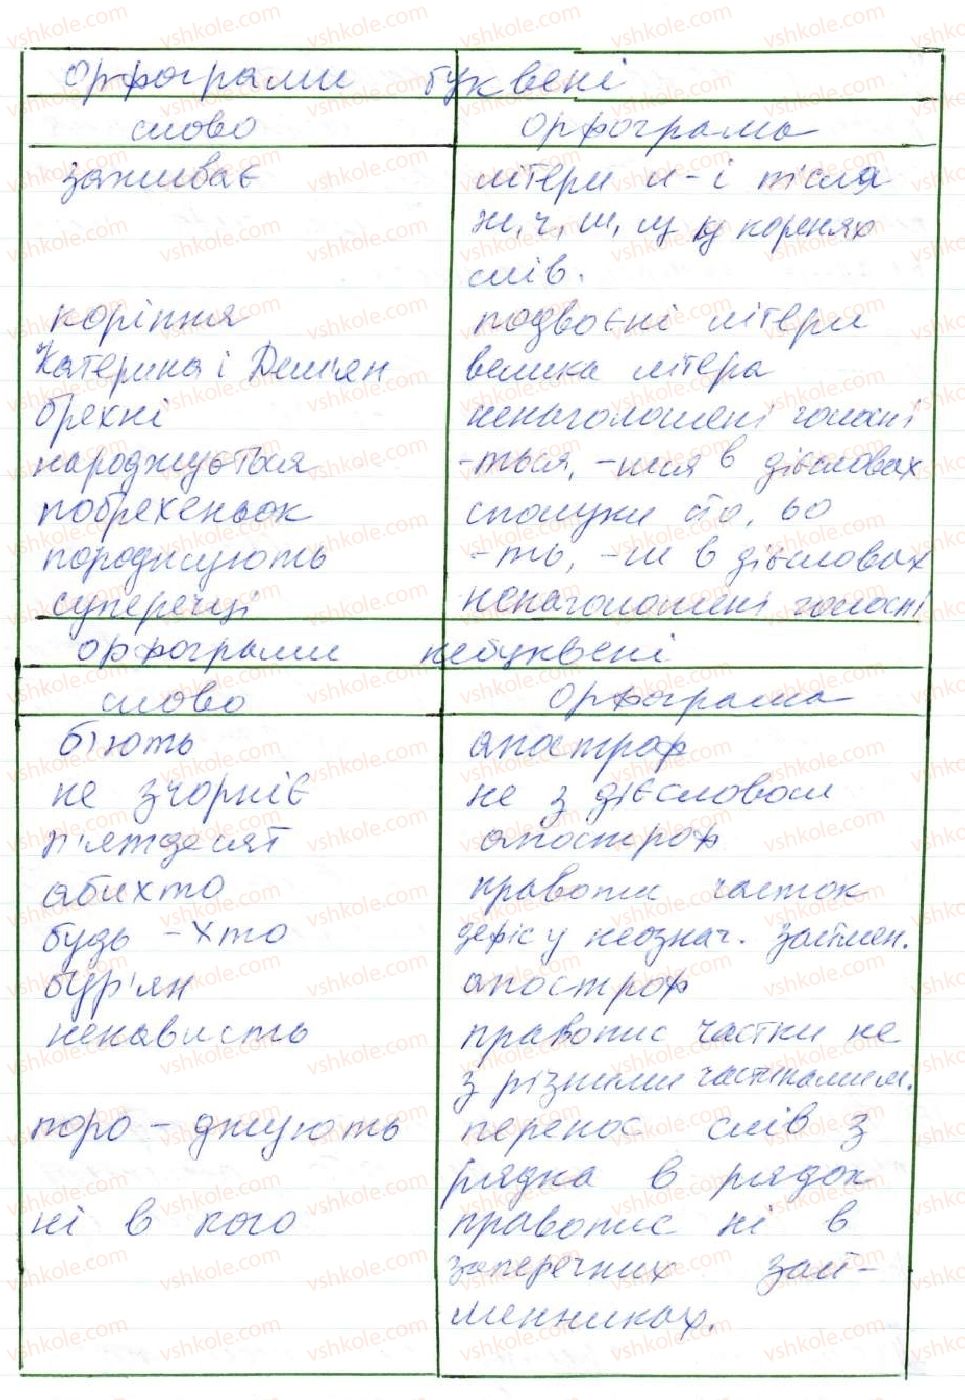 орфограми буквені
слово орфограма
заживає літери и-і після
ж, ч, ш, щ у коренях
слів.
коріння подвоєні літери
Катерина і Дем'ян велика літера
брехні ненаголошені голосні
народжується -ться, -шся в дієсловах
побрехеньок сполуки йо, ьо
породжують -ть, -ш в дієсловах
суперечці ненаголошені голосні
орфограми небуквені
слово орфограма
б'ють апостроф
не зчорніє не з дієсловом
п'ятдесят апостроф
абихто правопис часток
будь-хто дефіс у неознач. займен.
бур'ян апостроф
ненависть правопис частки не
з різними частинами м.
поро-джують перенос слів з
рядка в рядок
ні в кого правопис ні в
заперечних зай-
менниках.